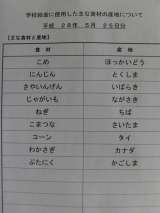 学校給食に使用した主な食材の産地について
平成 28年 5月 25日分
【主な食材と産地】
食材 産地
こめ ほっかいどう
にんじん とくしま
さやいんげん いばらき
じゃがいも ながさき
ねぎ ちば
こまつな さいたま
コーン タイ
わかさぎ カナダ
ぶたにく かごしま